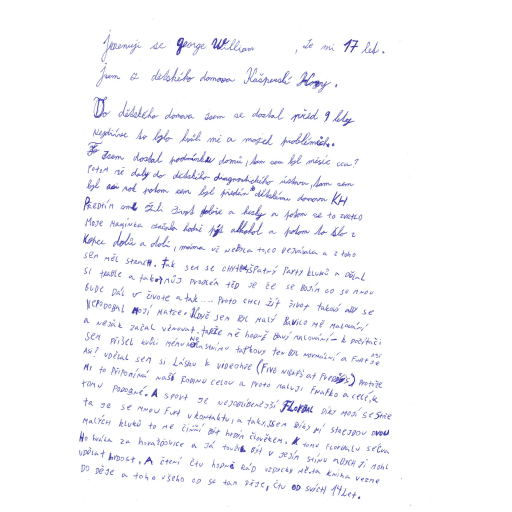 jmenuji se george William , je mi 17 let.
Jsem z dětského domova Kašperské Hory.
Do dětského domova jsem se dostal před 9 lety
nejdříve to bylo kvůli mě a mojech problémech.
jsem dostal podmínku domů, tam sem byl měsíc cca?
potom mě daly do dětského diagnostického ústavu, tam sem
byl asi rok potom sem byl předán dětskému domovu KH
Předtím sme žili život dobře a hezky a potom se to zvrtlo
moje maminka začala hodně pít alkohol a potom to šlo z
kopce dolů a dolů, máma už nebyla to, co bejvávala a z toho
sem měl strach. Tak sem se chytl špatný party kluků a dělal
si trable a takový můj problém teď je že se bojím co se mnou
bude dál v životě a tak... Proto chci žít život takový abych se
nepodobal mojí matce. Když sem byl malý bavilo mě malování
a nějak začal věnovat. takže mě hodně baví malování - k počítači
sem přišel kvůli
Asi? udělal sem si lásku k videohře (Five nights at Freddy's) protože
mi to připomíná naší rodinu celou a proto maluji Fnafko a celé k
tomu podobné. A sport je nejoblíbenější Florbal díky mojí sestře
ta je se mnou furt v kontaktu, a taky, jsem díky mí strejdou dvou
malých kluků to mě činní být hodin člověkem. K tomu florbalu ségra
Ho hrála za Horažďovice a já toužil být v jejím stínu abych jí mohl
udělat hrdost. A čtení čtu hodně rád vždycky mě ta kniha vezme
do děje a toho všeho co se tam děje, čtu od svích 14 let.